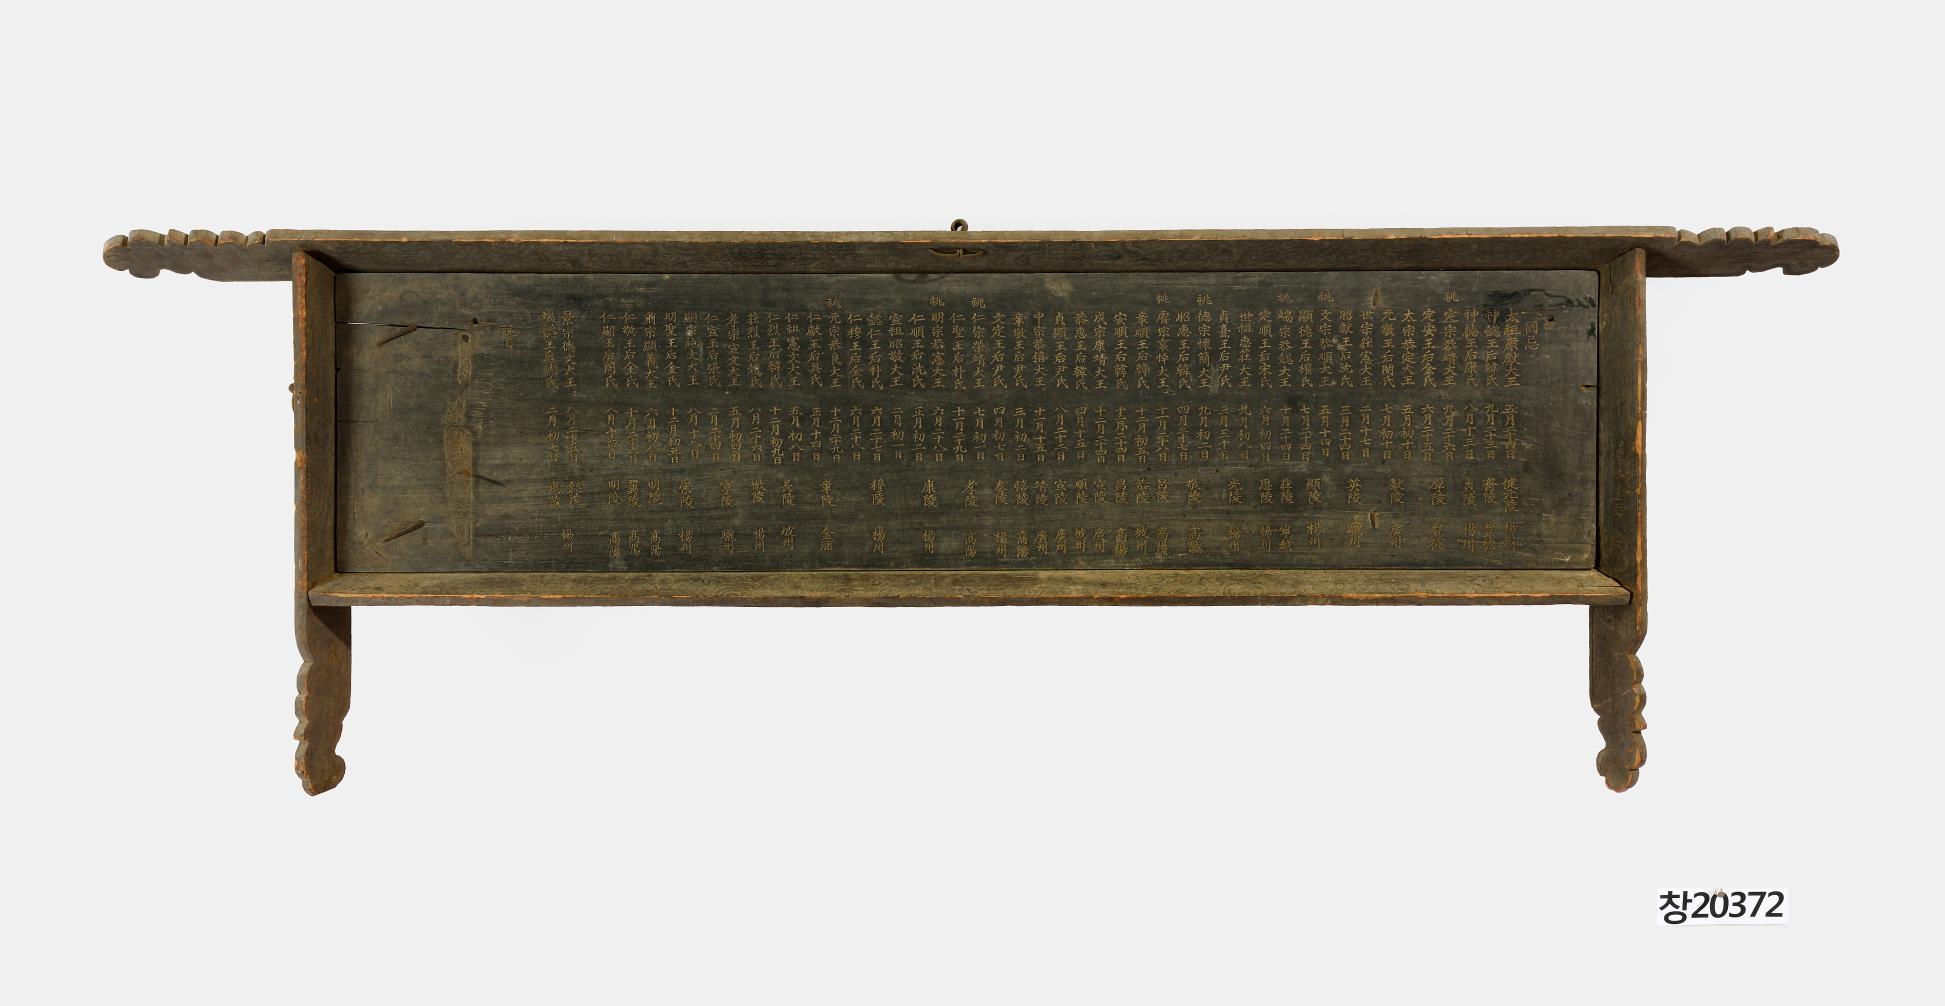 國忌
太祖康獻大王 五月二十四日 健元陵 楊州
神懿王后韓氏 九月二十三日 齊陵 豐德
神德王后康氏 八月十三日 貞陵 楊州
祧 定宗恭靖大王 九月二十六日
定安王后金氏 六月二十五日 厚陵 豐德
太宗恭定大王 五月初十日
元敬王后閔氏 七月初十日 獻陵 廣州
世宗莊憲大王 二月十七日
昭獻王后沈氏 三月二十四日 英陵 驪州
祧 文宗恭順大王 五月十四日
顯德王后權氏 七月二十四日 顯陵 楊州
祧 端宗恭懿大王 十月二十四日 莊陵 寧越
定順王后宋氏 六月初四日 思陵 楊州
世祖惠莊大王 九月初八日
貞熹王后尹氏 三月三十日 光陵 楊州
祧 德宗懷簡大王 九月初二日
昭惠王后韓氏 四月二十七日 敬陵 高陽
祧 睿宗章悼大王 十一月二十八日 昌陵 高陽
章順王后韓氏 十二月初五日 恭陵 坡州
安順王后韓氏 十二月二十四日 昌陵 高陽
成宗康靖大王 十二月二十四日 宣陵 廣州
恭惠王后韓氏 四月十五日 順陵 坡州
貞顯王后尹氏 八月二十二日 宣陵 廣州
中宗恭僖大王 十一月十五日 靖陵 廣州
章敬王后尹氏 三月初二日 禧陵 高陽
文定王后尹氏 四月初七日 泰陵 楊州
祧 仁宗榮靖大王 七月初一日
仁聖王后朴氏 十一月二十九日 孝陵 高陽
祧 明宗恭憲大王 六月二十八日
仁順王后沈氏 正月初二日 康陵 楊州
宣祖昭敬大王 二月初一日
懿仁王后朴氏 六月二十七日 穆陵 楊州
仁穆王后金氏 六月二十八日
祧 元宗恭良大王 十二月二十九日
仁獻王后具氏 正月十四日 章陵 金浦
仁祖憲文大王 五月初八日
仁烈王后韓氏 十二月初九日 長陵 坡州
莊烈王后趙氏 八月二十六日 徽陵 楊州
孝宗宣文大王 五月初四日
仁宣王后張氏 二月二十四日 寧陵 驪州
顯宗純文大王 八月十八日
明聖王后金氏 十二月初五日 崇陵 楊州
肅宗顯義大王 六月初八日 明陵 高陽
仁敬王后金氏 十月二十六日 翼陵 高陽
仁顯王后閔氏 八月十四日 明陵 高陽
景宗德文大王 八月二十五日 懿陵 楊州
端懿王后沈氏 二月初七日 惠陵
창20372